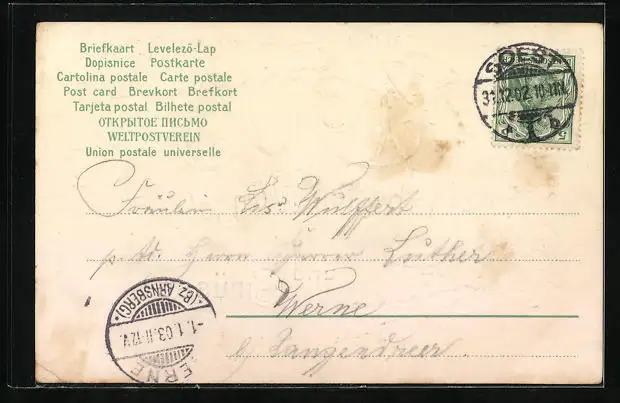 Briefkaart Levelező-Lap
Dopisnice Postkarte
Cartolina postale Carte postale
Post card Brevkort Brefkort
Tarjeta postal Bilhete postal
ОТКРЫТОЕ ПИСЬМО
WELTPOSTVEREIN
Union postale universelle
SOEST
31.12.02.10-11N.
* b
5
Fräulein Lis. Wulffert
p. Ad. Herrn Pfarrer Luther
Werne
b/ Langendreer.
(BZ. ARNSBERG).
-1.1.03.11-12V.
WERNE